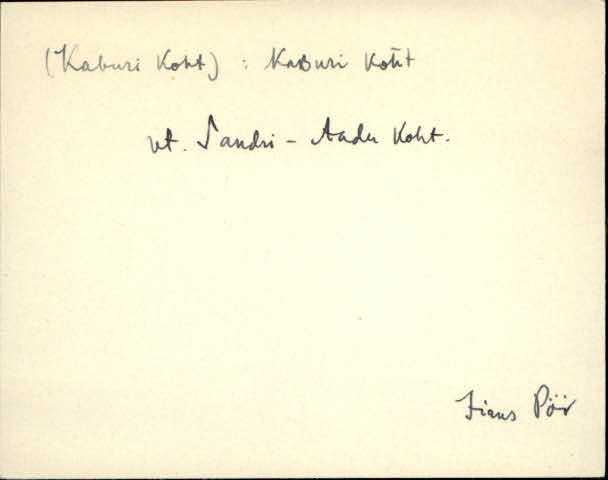 (Kaburi Koht) : Kaburi Koht
vt. Sandri - Aadu Koht.